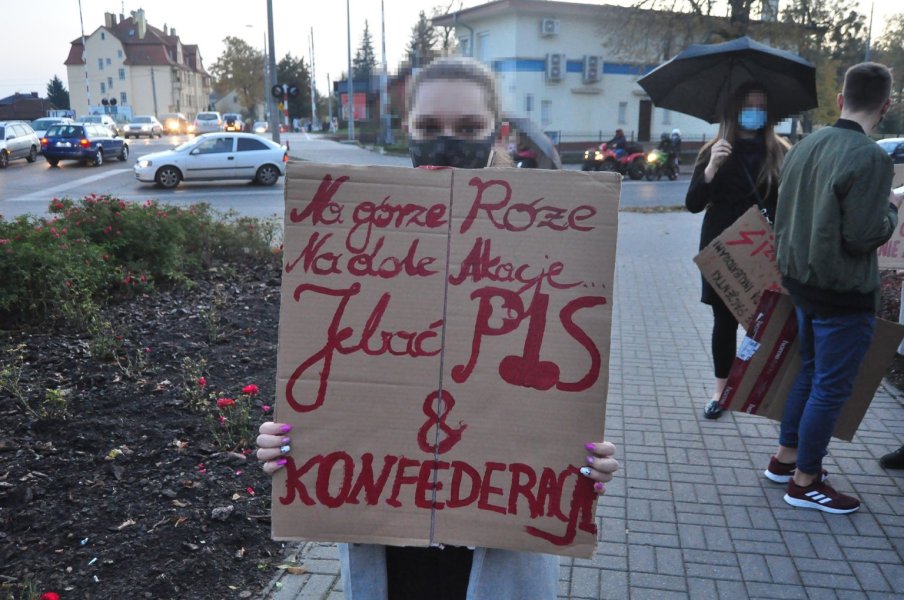 Na górze Róże
Na dole Akacje...
Jebać PIS
&
KONFEDERACJE